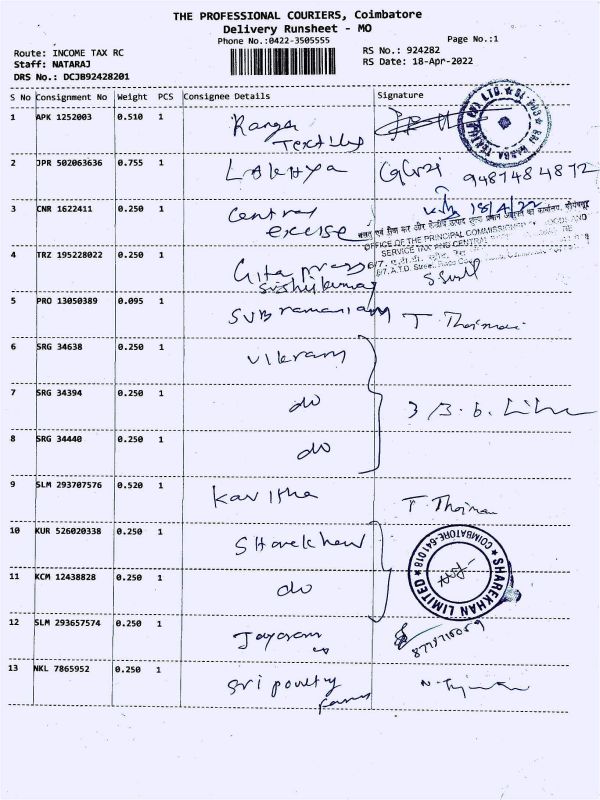 THE PROFESSIONAL COURIERS, Coimbatore
Delivery Runsheet - MO
Phone No.:0422-3505555
Page No.:1
Route: INCOME TAX RC
RS No.: 924282
Staff: NATARAJ
RS Date: 18-Apr-2022
DRS No.: DCJB92428201
S No Consignment No Weight PCS Consignee Details Signature
1 APK 1252003 0.510 1 Ranga
Textiles
2 JPR 502063636 0.755 1 Lakhya
9487484872
3 CNR 1622411 0.250 1 central 18/4/22
excise
OFFICE OF THE PRINCIPAL COMMISSIONER
SERVICE TAX
6/7, A.T.D. Street
4 TRZ 195228022 0.250 1 Gita press
5 PRO 13050389 0.095 1 Subramaniam
6 SRG 34638 0.250 1 vikram
7 SRG 34394 0.250 1 do
8 SRG 34440 0.250 1 do
9 SLM 293707576 0.520 1 Kavitha
10 KUR 526020338 0.250 1 Sharekhan
SHAREKHAN LIMITED ★ COIMBATORE-641018 ★
11 KCM 12438828 0.250 1 do
12 SLM 293657574 0.250 1 Jayaram
13 NKL 7865952 0.250 1 Sri poultry
farms